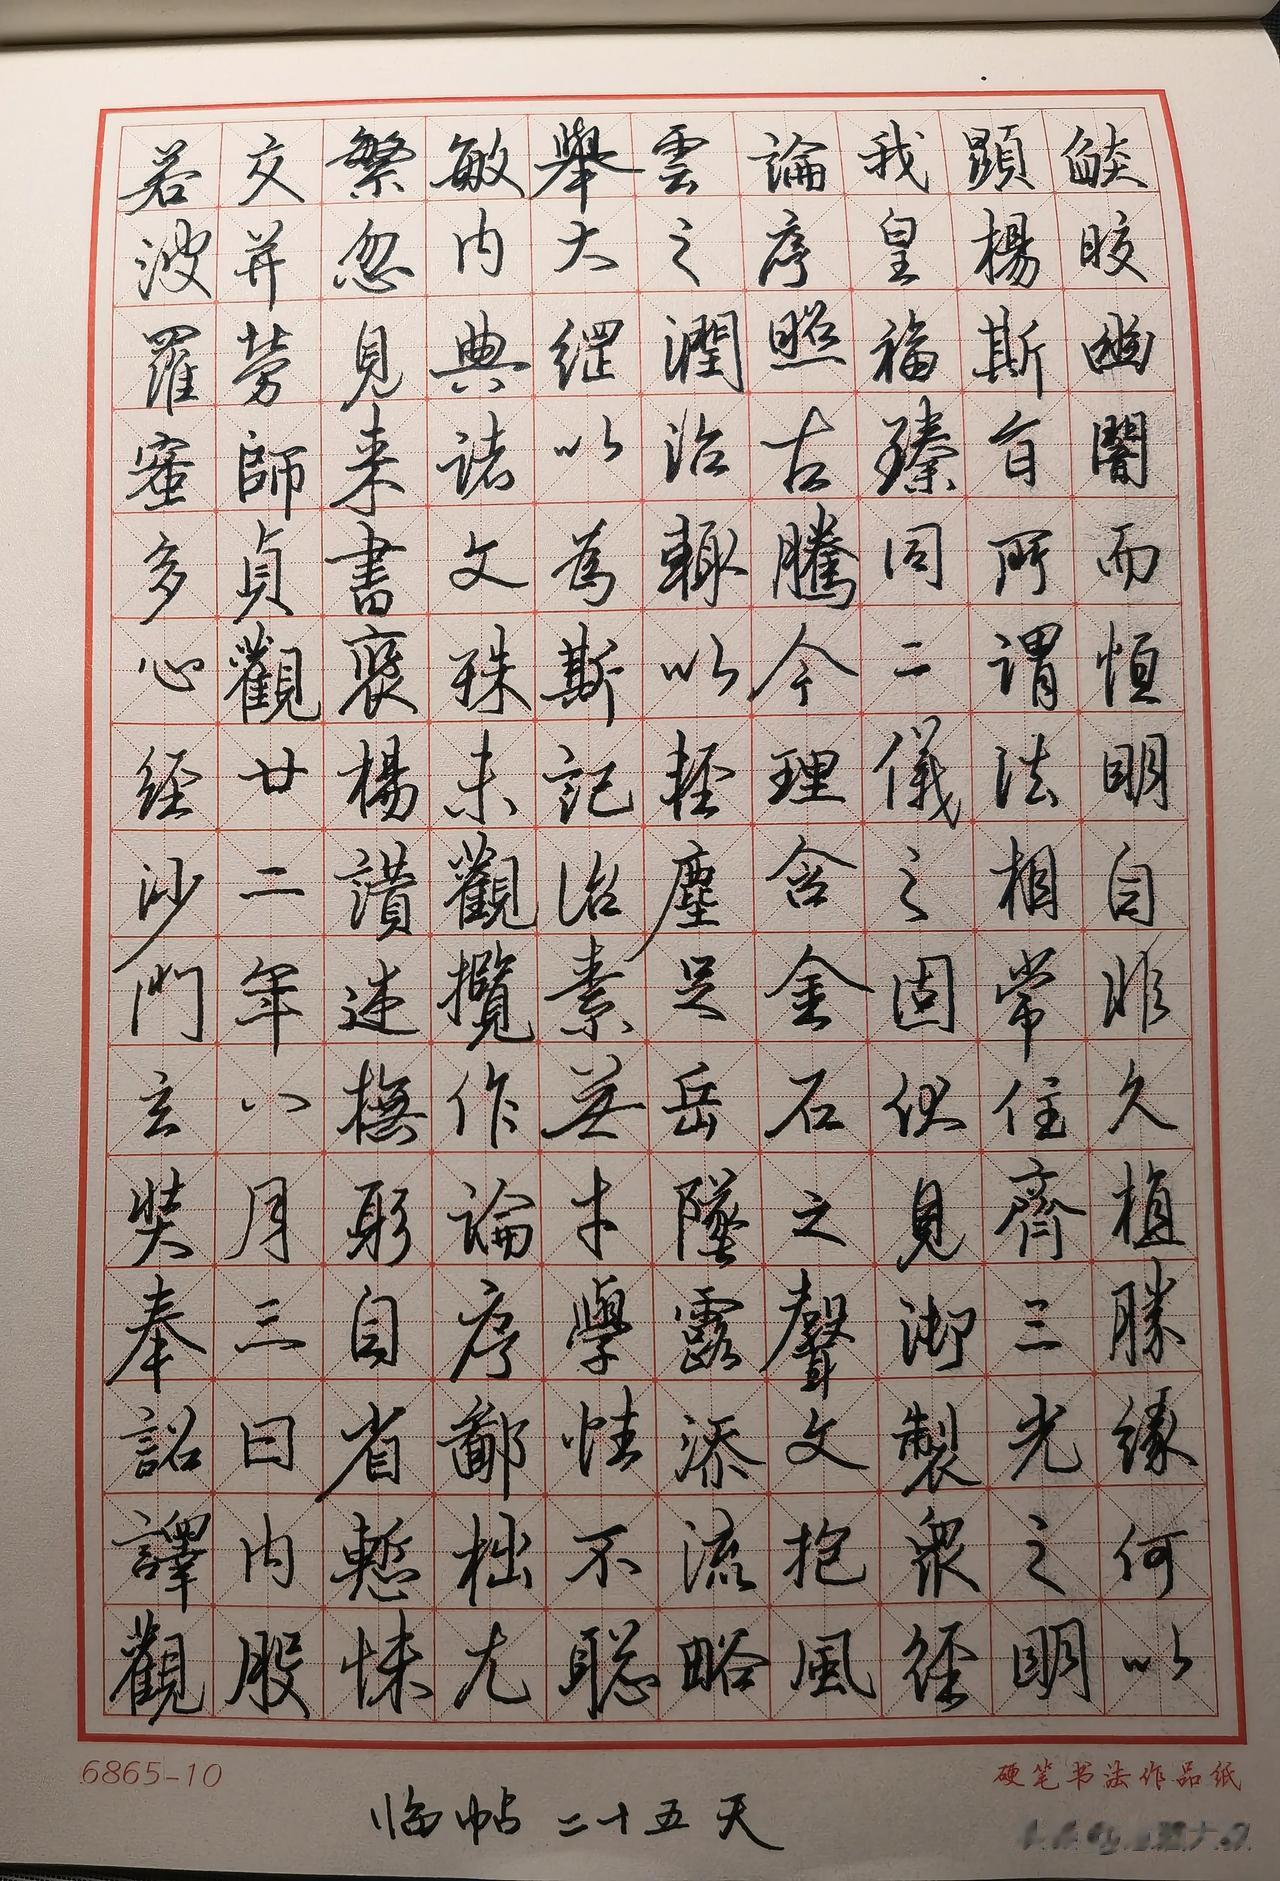 燄晈幽闇而恒明自非久植勝緣何以
顯楊斯旨所謂法相常住齊三光之明
我皇福臻同二儀之固伏見御製衆經
論序照古騰今理含金石之聲文抱風
雲之潤治輒以輕塵足岳墜露添流略
舉大綱以為斯記治素無才學性不聡
敏内典諸文殊未觀攬作論序鄙拙尤
繁忽見来書褒楊讃述撫躬自省慙悚
交并勞師貞觀廿二年八月三日内般
若波羅蜜多心經沙門玄奘奉詔譯觀
6865-10
硬笔书法作品纸
临帖二十五天